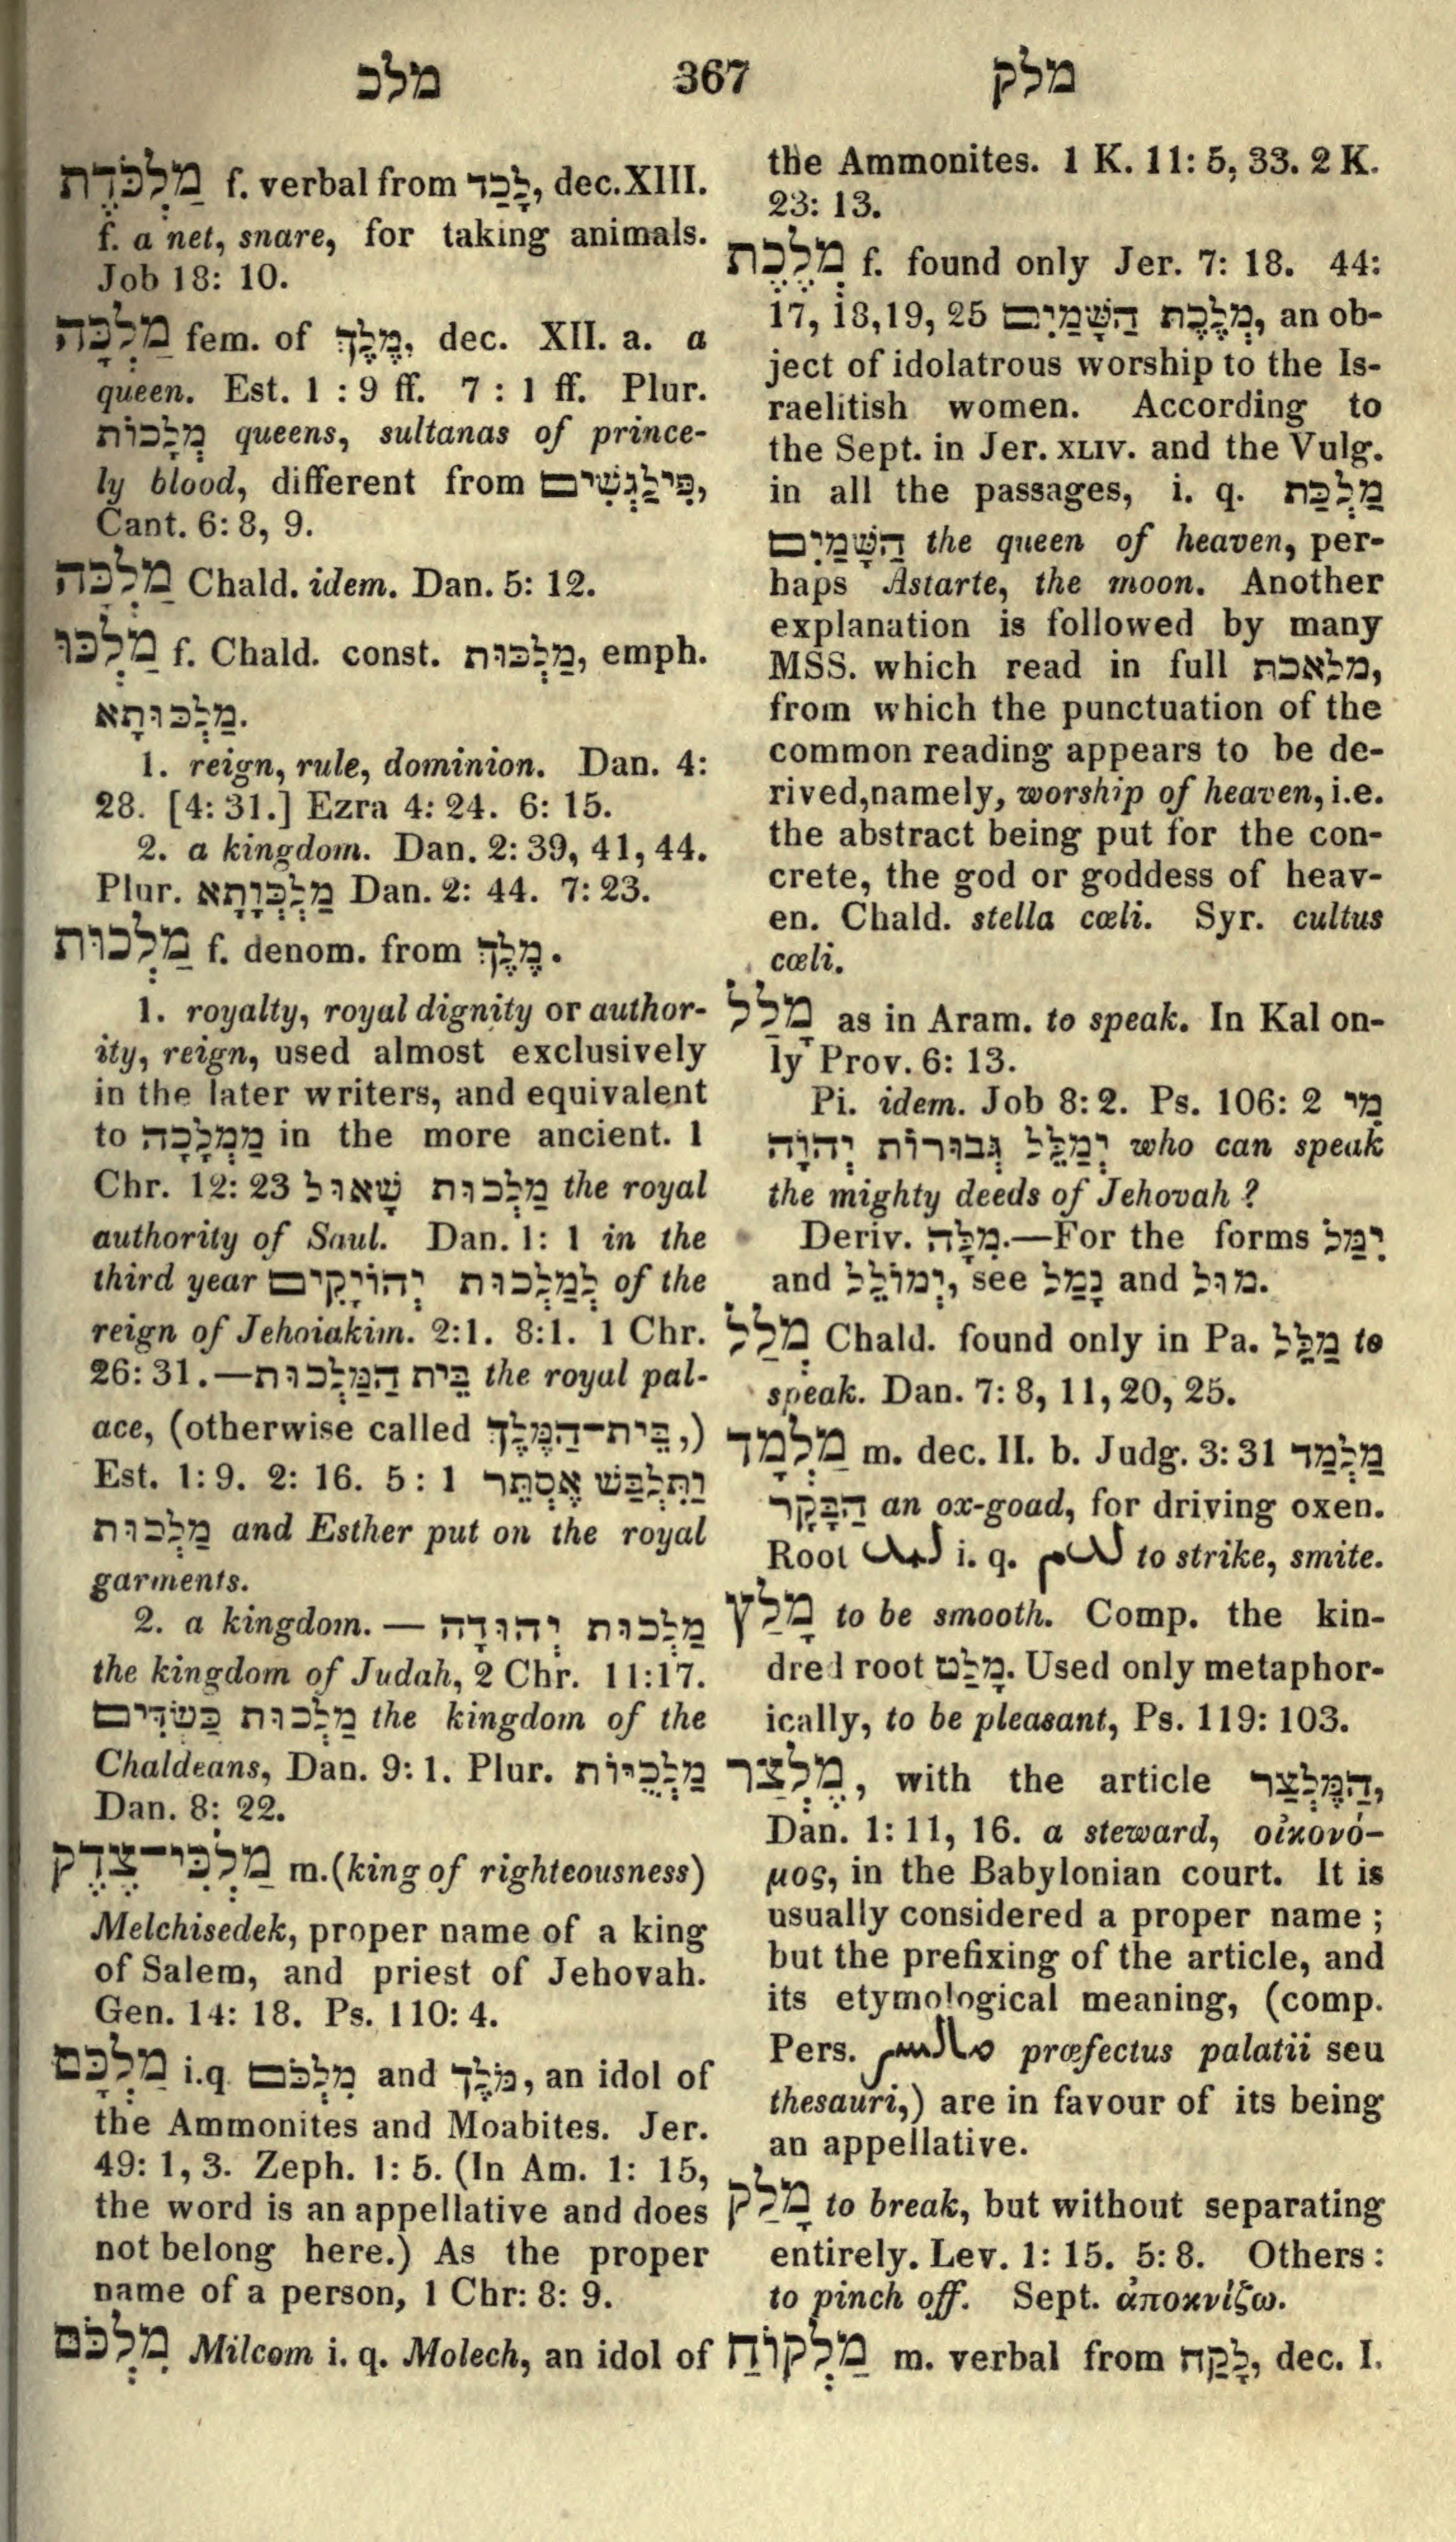 מלכ 367 מלק
מַלְכֹּדֶת f. verbal from לָכַד, dec. XIII.
f. a net, snare, for taking animals.
Job 18: 10.
מַלְכָּה fem. of מֶלֶךְ, dec. XII. a. a
queen. Est. 1 : 9 ff. 7 : 1 ff. Plur.
מְלָכוֹת queens, sultanas of prince-
ly blood, different from פִּילַגְשִׁים,
Cant. 6: 8, 9.
מַלְכָּה Chald. idem. Dan. 5: 12.
מַלְכוּ f. Chald. const. מַלְכוּת, emph.
מַלְכוּתָא.
1. reign, rule, dominion. Dan. 4:
28. [4: 31.] Ezra 4: 24. 6: 15.
2. a kingdom. Dan. 2: 39, 41, 44.
Plur. מַלְכְּוָתָא Dan. 2: 44. 7: 23.
מַלְכוּת f. denom. from מֶלֶךְ.
1. royalty, royal dignity or author-
ity, reign, used almost exclusively
in the later writers, and equivalent
to מַמְלָכָה in the more ancient. 1
Chr. 12: 23 מַלְכוּת שָׁאוּל the royal
authority of Saul. Dan. 1: 1 in the
third year לְמַלְכוּת יְהוֹיָקִים of the
reign of Jehoiakim. 2:1. 8:1. 1 Chr.
26: 31.—בֵּית הַמַּלְכוּת the royal pal-
ace, (otherwise called בֵּית־הַמֶּלֶךְ,)
Est. 1: 9. 2: 16. 5 : 1 וַתִּלְבַּשׁ אֶסְתֵּר
מַלְכוּת and Esther put on the royal
garments.
2. a kingdom. — מַלְכוּת יְהוּדָה
the kingdom of Judah, 2 Chr. 11:17.
מַלְכוּת כַּשְׂדִּים the kingdom of the
Chaldeans, Dan. 9: 1. Plur. מַלְכֻיּוֹת
Dan. 8: 22.
מַלְכִּי־צֶדֶק m. (king of righteousness)
Melchisedek, proper name of a king
of Salem, and priest of Jehovah.
Gen. 14: 18. Ps. 110: 4.
מַלְכָּם i.q. מִלְכֹּם and מֹלֶךְ, an idol of
the Ammonites and Moabites. Jer.
49: 1, 3. Zeph. 1: 5. (In Am. 1: 15,
the word is an appellative and does
not belong here.) As the proper
name of a person, 1 Chr: 8: 9.
מִלְכֹּם Milcom i. q. Molech, an idol of
the Ammonites. 1 K. 11: 5, 33. 2 K.
23: 13.
מְלֶכֶת f. found only Jer. 7: 18. 44:
17, 18, 19, 25 מְלֶכֶת הַשָּׁמַיִם, an ob-
ject of idolatrous worship to the Is-
raelitish women. According to
the Sept. in Jer. XLIV. and the Vulg.
in all the passages, i. q. מַלְכַּת
הַשָּׁמַיִם the queen of heaven, per-
haps Astarte, the moon. Another
explanation is followed by many
MSS. which read in full מלאכת,
from which the punctuation of the
common reading appears to be de-
rived, namely, worship of heaven, i.e.
the abstract being put for the con-
crete, the god or goddess of heav-
en. Chald. stella cœli. Syr. cultus
cœli.
מָלַל as in Aram. to speak. In Kal on-
ly Prov. 6: 13.
Pi. idem. Job 8: 2. Ps. 106: 2 מִי
יְמַלֵּל גְּבוּרוֹת יְהוָֹה who can speak
the mighty deeds of Jehovah ?
Deriv. מִלָּה.—For the forms יִמַּל
and יְמוֹלֵל, see נָמַל and מוּל.
מְלַל Chald. found only in Pa. מַלֵּל to
speak. Dan. 7: 8, 11, 20, 25.
מַלְמָד m. dec. II. b. Judg. 3: 31 מַלְמַד
הַבָּקָר an ox-goad, for driving oxen.
Root لمد i. q. لدم to strike, smite.
מָלַץ to be smooth. Comp. the kin-
dred root מָלַט. Used only metaphor-
ically, to be pleasant, Ps. 119: 103.
מֶלְצַר, with the article הַמֶּלְצַר,
Dan. 1: 11, 16. a steward, οἰκονό-
μος, in the Babylonian court. It is
usually considered a proper name ;
but the prefixing of the article, and
its etymological meaning, (comp.
Pers. præfectus palatii seu
thesauri,) are in favour of its being
an appellative.
מָלַק to break, but without separating
entirely. Lev. 1: 15. 5: 8. Others :
to pinch off. Sept. ἀποκνίζω.
מַלְקוֹחַ m. verbal from לָקַח, dec. I.